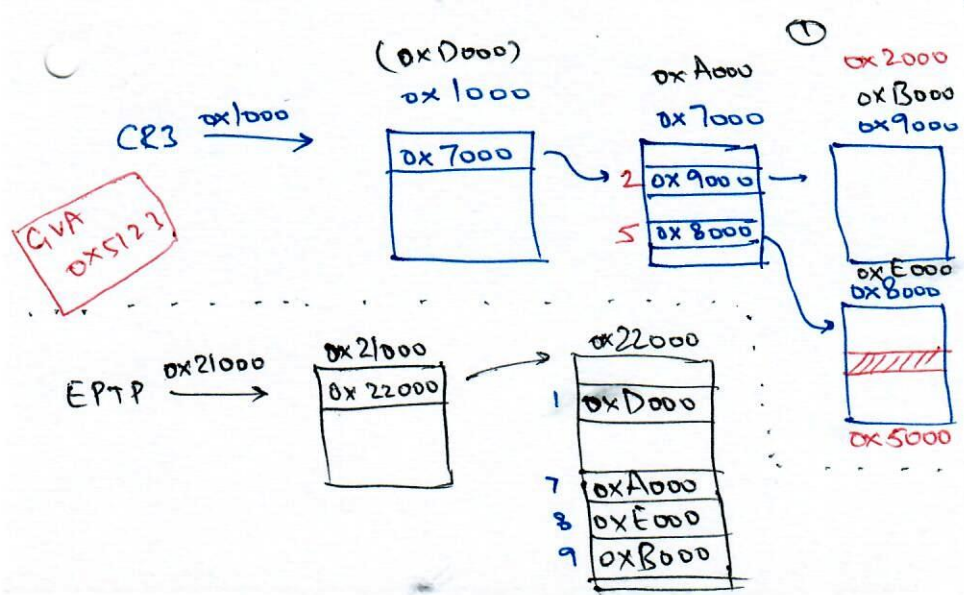 ①
(0xD000)
0x1000
CR3 0x1000
0x7000
0xA000
0x7000
2 0x9000
5 0x8000
0x2000
0xB000
0x9000
GVA
0x5123
0xE000
0x8000
0x5000
EPTP 0x21000
0x21000
0x22000
0x22000
1 0xD000
7 0xA000
8 0xE000
9 0xB000